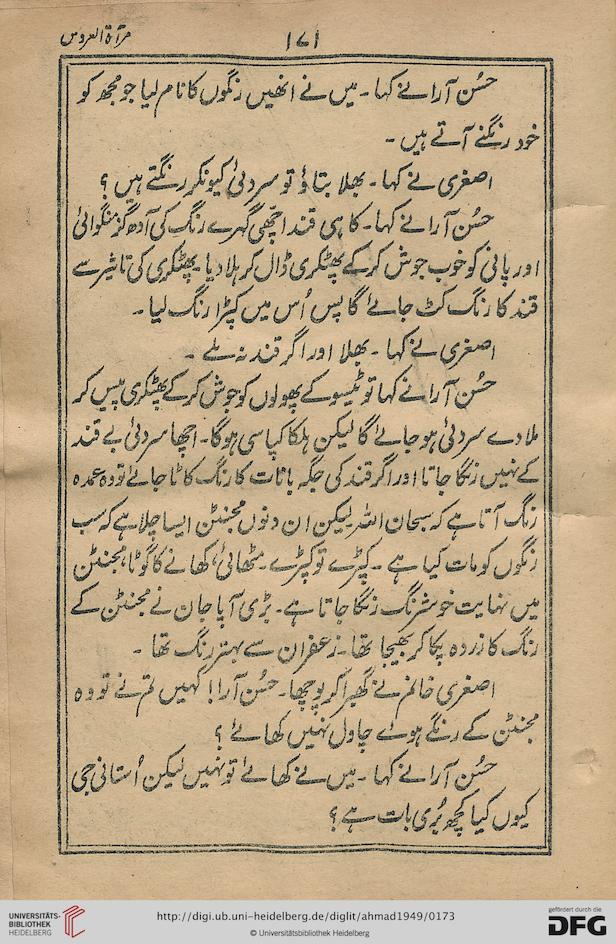 مرآۃ العروس
۱۷۱
حسُن آرا نے کہا ۔ میں نے انھیں رنگوں کا نام لیا جو مجھ کو
خود رنگنے آتے ہیں ۔
اصغری نے کہا ۔ بھلا بتاؤ تو سردئی کیونکر رنگتے ہیں ؟
حسُن آرا نے کہا ۔ کاہی قند اچھی گہرے رنگ کی آدھ گز منگوائی
اور پانی کو خوب جوش کر کے پھٹکری ڈال کر ہلا دیا ۔ پھٹکری کی تاثیر سے
قند کا رنگ کٹ جائے گا پس اُس میں کپڑا رنگ لیا ۔
اصغری نے کہا ۔ بھلا اور اگر قند نہ ملے ۔
حسُن آرا نے کہا تو ٹیسو کے پھولوں کو جوش کر کے پھٹکری پیس کر
ملا دے سردئی ہو جائے گا لیکن ہلکا کپاسی ہوگا ۔ اچھا سردئی بے قند
کے نہیں رنگا جاتا اور اگر قند کی جگہ بانات کا رنگ کاٹا جائے تو وہ عمدہ
رنگ آتا ہے کہ سبحان اللہ لیکن ان دنوں مجنٹن ایسا چلا ہے کہ سب
رنگوں کو مات کیا ہے ۔ کپڑے تو کپڑے ۔ مٹھائی، کھانے کا گوٹا، مجنٹن
میں نہایت خوشرنگ رنگا جاتا ہے ۔ بڑی آپا جان نے مجنٹن کے
رنگ کا زردہ پکا کر بھیجا تھا ۔ زعفران سے بہتر رنگ تھا ۔
اصغری خانم نے گھبرا کر پوچھا ۔ حسُن آرا! کہیں تم نے تو وہ
مجنٹن کے رنگے ہوئے چاول نہیں کھائے ؟
حسُن آرا نے کہا ۔ میں نے کھائے تو نہیں لیکن اُستانی جی
کیوں کیا کچھ بُری بات ہے ؟
UNIVERSITÄTS-
BIBLIOTHEK
HEIDELBERG
http://digi.ub.uni-heidelberg.de/diglit/ahmad1949/0173
© Universitätsbibliothek Heidelberg
gefördert durch die
DFG